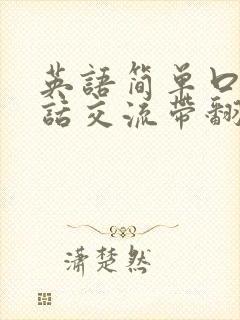 英語简单口
話交流带翻
潇楚然